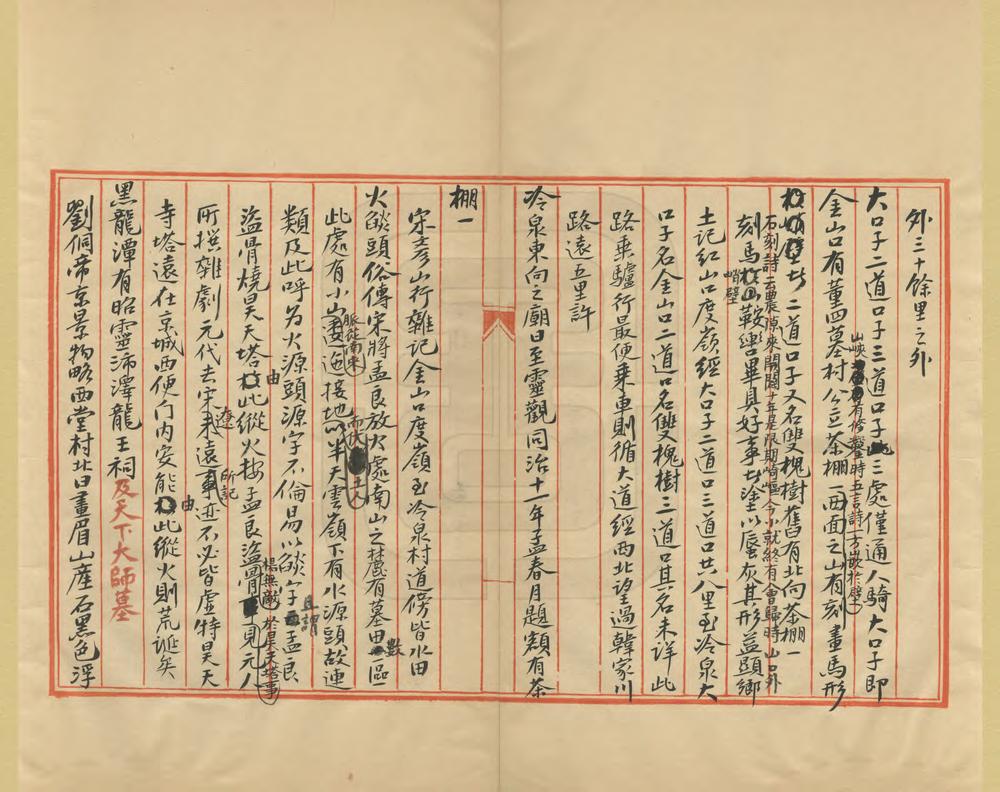 外三十餘里之外
大口子二道口子三道口子三處僅通人騎大口子即
山峽有修鑿時五言詩一方嵌於壁
金山口有董四墓村公立茶棚一西面之山有刻畫馬形
石刻詩云農隙來開闢十年是限期崎嶇今小就終有人會歸時山口外
峭壁二道口子又名雙槐樹舊有北向茶棚一
刻馬鞍轡畢具好事者塗以蜃灰其形益顯鄉
土記紅山口度嶺經大口子二道口三道口共八里至冷泉大
口子名金山口二道口名雙槐樹三道口其名未詳此
路乘驢行最便乘車則循大道經西北望過韓家川
路遠五里許
冷泉東向之廟曰至靈觀同治十一年孟春月題額有茶
棚一
宋彥山行雜記金山口度嶺至冷泉村道傍皆水田
火燄頭俗傳宋將孟良放火處南山之麓有墓田數區
此處有小山脈從南來迤接地而伏土人以半天雲嶺下有水源頭故連
類及此呼為火源頭源字不倫易以燄字且謂孟良
盜骨燒昊天塔由此縱火按孟良盜楊無敵骨於昊天塔事見元人
所撰雜劇元代去宋遼未遠所記事迹不必皆虛特昊天
寺塔遠在京城西便门內安能由此縱火則荒誕矣
黑龍潭有昭靈沛澤龍王祠及天下大師墓
劉侗帝京景物略西堂村北曰畫眉山產石黑色浮